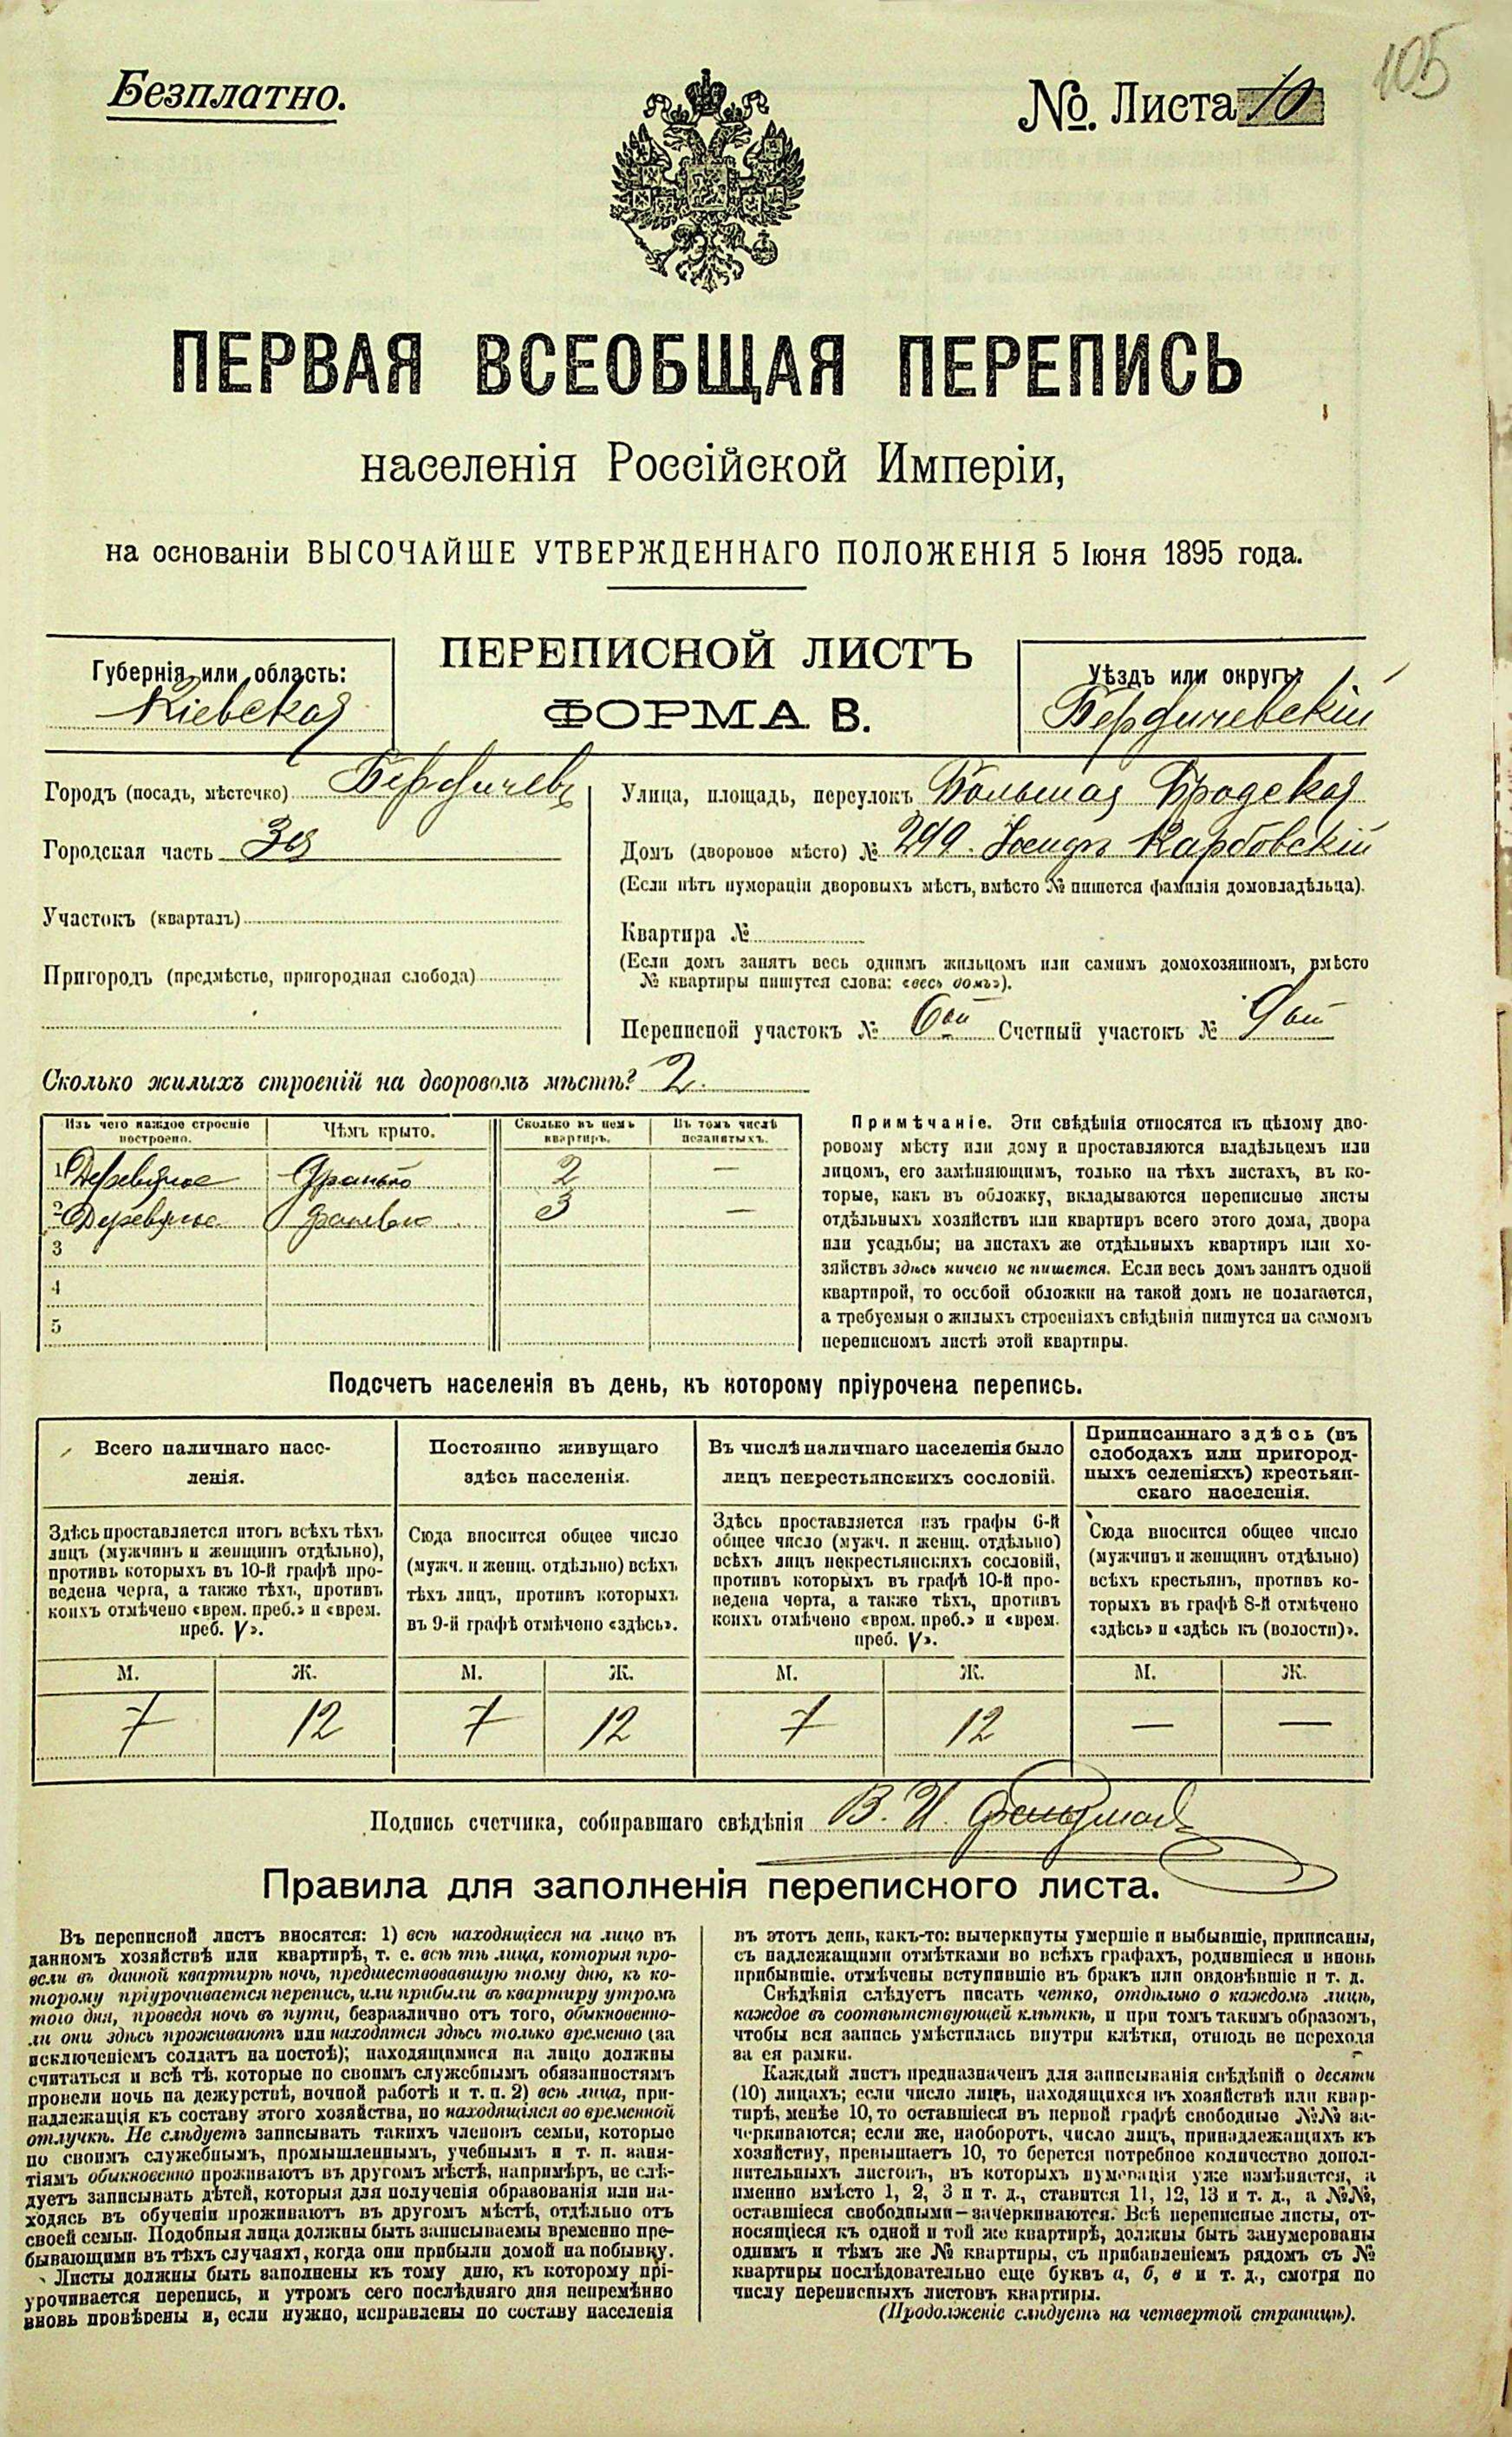 105
Безплатно.
№. Листа 10
ПЕРВАЯ ВСЕОБЩАЯ ПЕРЕПИСЬ
населенія Россійской Имперіи,
на основаніи ВЫСОЧАЙШЕ УТВЕРЖДЕННАГО ПОЛОЖЕНІЯ 5 Іюня 1895 года.
Губернія или область:
Кіевская
ПЕРЕПИСНОЙ ЛИСТЪ
ФОРМА В.
Уѣздъ или округъ:
Бердичевскій
Городъ (посадъ, мѣстечко) Бердичевъ
Городская часть 3я
Участокъ (кварталъ)
Пригородъ (предмѣстье, пригородная слобода)
Улица, площадь, переулокъ Большая Бродская
Домъ (дворовое мѣсто) № 299. Карбовскій
(Если нѣтъ нумераціи дворовыхъ мѣстъ, вмѣсто № пишется фамилія домовладѣльца).
Квартира №
(Если домъ занятъ весь однимъ жильцомъ или самимъ домохозяиномъ, вмѣсто
№ квартиры пишутся слова: «весь домъ»).
Переписной участокъ № 6ой Счетный участокъ № 9ый
Сколько жилыхъ строеній на дворовомъ мѣстѣ? 2.
Изъ чего каждое строеніе построено.
Чѣмъ крыто.
Сколько въ немъ квартиръ.
Въ томъ числѣ незанятыхъ.
1 Деревяное Дранью 2 —
2 Деревяное Дранью 3 —
3
4
5
Примѣчаніе. Эти свѣдѣнія относятся къ цѣлому дво-
ровому мѣсту или дому и проставляются владѣльцемъ или
лицомъ, его замѣняющимъ, только на тѣхъ листахъ, въ ко-
торые, какъ въ обложку, вкладываются переписные листы
отдѣльныхъ хозяйствъ или квартиръ всего этого дома, двора
или усадьбы; на листахъ же отдѣльныхъ квартиръ или хо-
зяйствъ здѣсь ничего не пишется. Если весь домъ занятъ одной
квартирой, то особой обложки на такой домъ не полагается,
а требуемыя о жилыхъ строеніяхъ свѣдѣнія пишутся на самомъ
переписномъ листѣ этой квартиры.
Подсчетъ населенія въ день, къ которому пріурочена перепись.
Всего наличнаго насе-
ленія.
Здѣсь проставляется итогъ всѣхъ тѣхъ
лицъ (мужчинъ и женщинъ отдѣльно),
противъ которыхъ въ 10-й графѣ про-
ведена черта, а также тѣхъ, противъ
коихъ отмѣчено «врем. преб.» и «врем.
преб. V».
Постоянно живущаго
здѣсь населенія.
Сюда вносится общее число
(мужч. и женщ. отдѣльно) всѣхъ
тѣхъ лицъ, противъ которыхъ
въ 9-й графѣ отмѣчено «здѣсь».
Въ числѣ наличнаго населенія было
лицъ некрестьянскихъ сословій.
Здѣсь проставляется изъ графы 6-й
общее число (мужч. и женщ. отдѣльно)
всѣхъ лицъ некрестьянскихъ сословій,
противъ которыхъ въ графѣ 10-й про-
ведена черта, а также тѣхъ, противъ
коихъ отмѣчено «врем. преб.» и «врем.
преб. V».
Приписаннаго здѣсь (въ
слободахъ или пригород-
ныхъ селеніяхъ) крестьян-
скаго населенія.
Сюда вносится общее число
(мужчинъ и женщинъ отдѣльно)
всѣхъ крестьянъ, противъ ко-
торыхъ въ графѣ 8-й отмѣчено
«здѣсь» и «здѣсь къ (волости)».
М. Ж. М. Ж. М. Ж. М. Ж.
7 12 7 12 7 12 — —
Подпись счетчика, собиравшаго свѣдѣнія В. И. Фельдманъ
Правила для заполненія переписного листа.
Въ переписной листъ вносятся: 1) всѣ находящіеся на лицо въ
данномъ хозяйствѣ или квартирѣ, т. е. всѣ тѣ лица, которыя про-
вели въ данной квартирѣ ночь, предшествовавшую тому дню, къ ко-
торому пріурочивается перепись, или прибыли въ квартиру утромъ
того дня, проведя ночь въ пути, безразлично отъ того, обыкновенно-
ли они здѣсь проживаютъ или находятся здѣсь только временно (за
исключеніемъ солдатъ на постоѣ); находящимися на лицо должны
считаться и всѣ тѣ, которые по своимъ служебнымъ обязанностямъ
провели ночь на дежурствѣ, ночной работѣ и т. п. 2) всѣ лица, при-
надлежащія къ составу этого хозяйства, но находящіяся во временной
отлучкѣ. Не слѣдуетъ записывать такихъ членовъ семьи, которые
по своимъ служебнымъ, промышленнымъ, учебнымъ и т. п. заня-
тіямъ обыкновенно проживаютъ въ другомъ мѣстѣ, напримѣръ, не слѣ-
дуетъ записывать дѣтей, которыя для полученія образованія или на-
ходясь въ обученіи проживаютъ въ другомъ мѣстѣ, отдѣльно отъ
своей семьи. Подобныя лица должны быть записываемы временно пре-
бывающими въ тѣхъ случаяхъ, когда они прибыли домой на побывку.
Листы должны быть заполнены къ тому дню, къ которому прі-
урочивается перепись, и утромъ сего послѣдняго дня непремѣнно
вновь провѣрены и, если нужно, исправлены по составу населенія
въ этотъ день, какъ-то: вычеркнуты умершіе и выбывшіе, приписаны,
съ надлежащими отмѣтками во всѣхъ графахъ, родившіеся и вновь
прибывшіе, отмѣчены вступившіе въ бракъ или овдовѣвшіе и т. д.
Свѣдѣнія слѣдуетъ писать четко, отдѣльно о каждомъ лицѣ,
каждое въ соотвѣтствующей клѣткѣ, и при томъ такимъ образомъ,
чтобы вся запись умѣстилась внутри клѣтки, отнюдь не переходя
за ея рамки.
Каждый листъ предназначенъ для записыванія свѣдѣній о десяти
(10) лицахъ; если число лицъ, находящихся въ хозяйствѣ или квар-
тирѣ, менѣе 10, то оставшіеся въ первой графѣ свободные №№ за-
черкиваются; если же, наоборотъ, число лицъ, принадлежащихъ къ
хозяйству, превышаетъ 10, то берется потребное количество допол-
нительныхъ листовъ, въ которыхъ нумерація уже измѣняется, а
именно вмѣсто 1, 2, 3 и т. д., ставится 11, 12, 13 и т. д., а №№,
оставшіеся свободными—зачеркиваются. Всѣ переписные листы, от-
носящіеся къ одной и той же квартирѣ, должны быть занумерованы
однимъ и тѣмъ же № квартиры, съ прибавленіемъ рядомъ съ №
квартиры послѣдовательно еще буквъ а, б, в и т. д., смотря по
числу переписныхъ листовъ квартиры.
(Продолженіе слѣдуетъ на четвертой страницѣ).